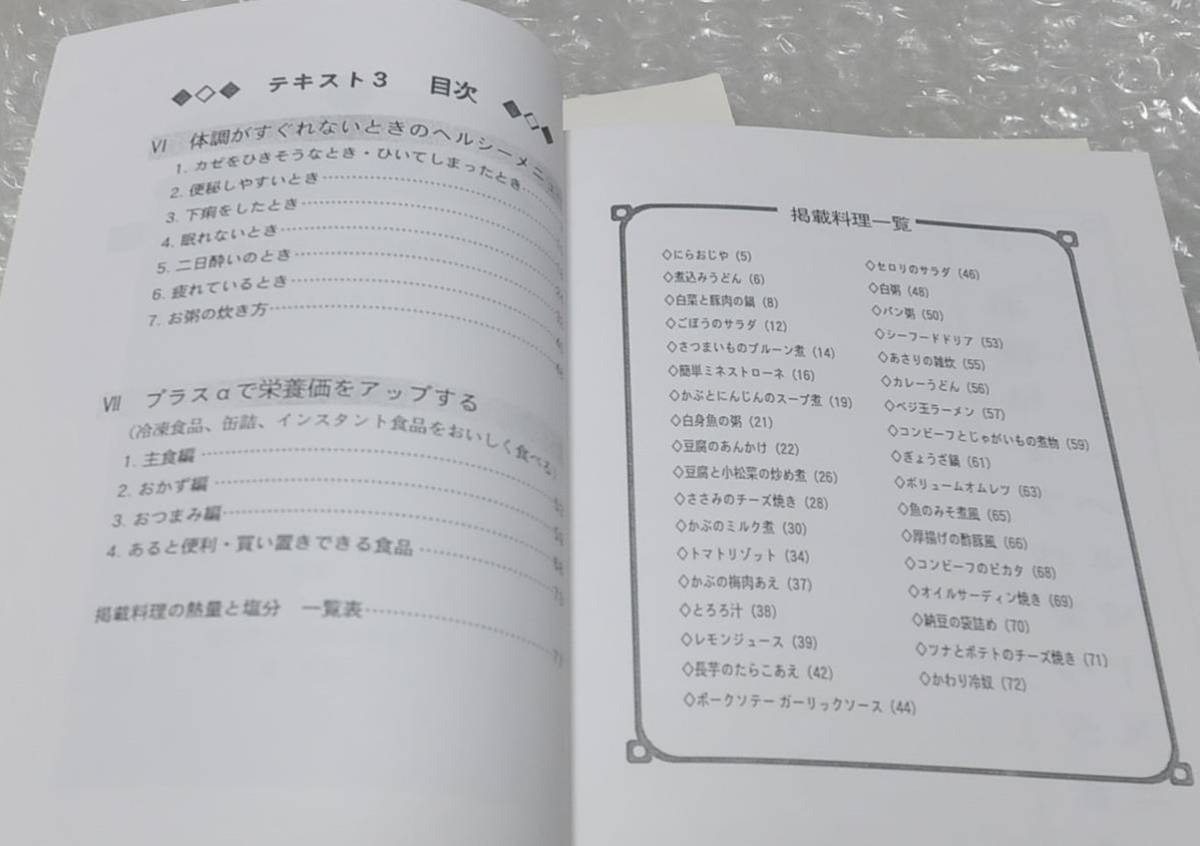 ◆◇◆ テキスト3 目次 ◆◇◆
Ⅵ 体調がすぐれないときのヘルシーメニュ
1. カゼをひきそうなとき・ひいてしまったとき
2. 便秘しやすいとき
3. 下痢をしたとき
4. 眠れないとき
5. 二日酔いのとき
6. 疲れているとき
7. お粥の炊き方
Ⅶ プラスαで栄養価をアップする
(冷凍食品、缶詰、インスタント食品をおいしく食べる)
1. 主食編
2. おかず編
3. おつまみ編
4. あると便利・買い置きできる食品
掲載料理の熱量と塩分 一覧表
掲載料理一覧
◇にらおじや (5)
◇煮込みうどん (6)
◇白菜と豚肉の鍋 (8)
◇ごぼうのサラダ (12)
◇さつまいものプルーン煮 (14)
◇簡単ミネストローネ (16)
◇かぶとにんじんのスープ煮 (19)
◇白身魚の粥 (21)
◇豆腐のあんかけ (22)
◇豆腐と小松菜の炒め煮 (26)
◇ささみのチーズ焼き (28)
◇かぶのミルク煮 (30)
◇トマトリゾット (34)
◇かぶの梅肉あえ (37)
◇とろろ汁 (38)
◇レモンジュース (39)
◇長芋のたらこあえ (42)
◇ポークソテー ガーリックソース (44)
◇セロリのサラダ (46)
◇白粥 (48)
◇パン粥 (50)
◇シーフードドリア (53)
◇あさりの雑炊 (55)
◇カレーうどん (56)
◇ベジ玉ラーメン (57)
◇コンビーフとじゃがいもの煮物 (59)
◇ぎょうざ鍋 (61)
◇ボリュームオムレツ (63)
◇魚のみそ煮風 (65)
◇厚揚げの酢豚風 (66)
◇コンビーフのピカタ (68)
◇オイルサーディン焼き (69)
◇納豆の袋詰め (70)
◇ツナとポテトのチーズ焼き (71)
◇かわり冷奴 (72)